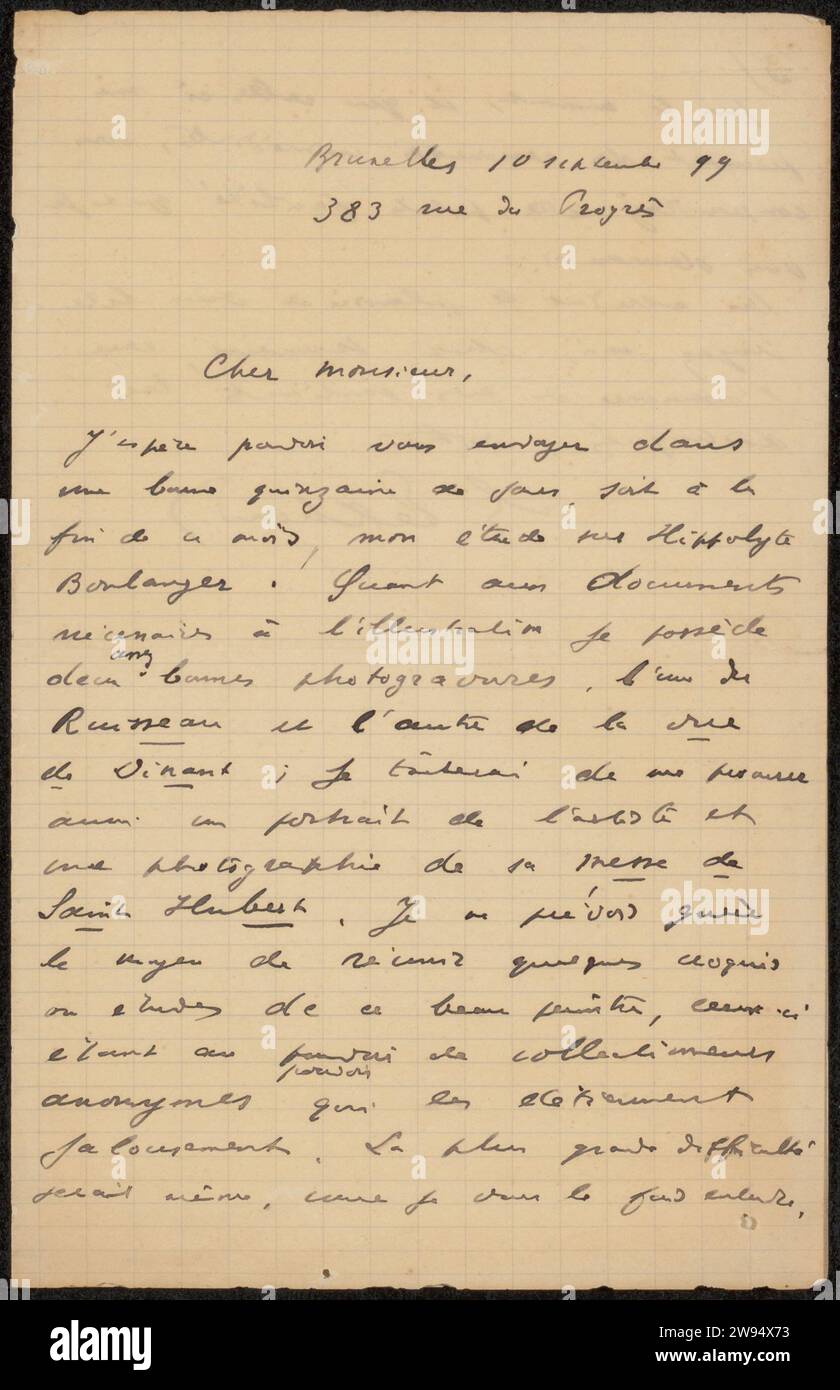 Bruxelles 10 septembre 99
383 rue du Progrès
Cher Monsieur,
J'espère pouvoir vous envoyer dans
une bonne quinzaine de jours, soit à la
fin de ce mois, mon étude sur Hippolyte
Boulanger. Quant aux documents
nécessaires à l'illustration je possède
assez
deux bonnes photogravures, l'une du
Ruisseau et l'autre de la vue
de Dinant ; je tâcherai de me procurer
aussi un portrait de l'artiste et
une photographie de sa messe de
Saint Hubert. Je ne prévois guère
le moyen de réunir quelques croquis
ou études de ce beau peintre, ceux-ci
étant au pouvoir de collectionneurs
pouvoir
anonymes qui les détiennent
jalousement. La plus grande difficulté
serait même, comme je vous le fais entendre,
alamy
Image ID: 2W94X73
www.alamy.com